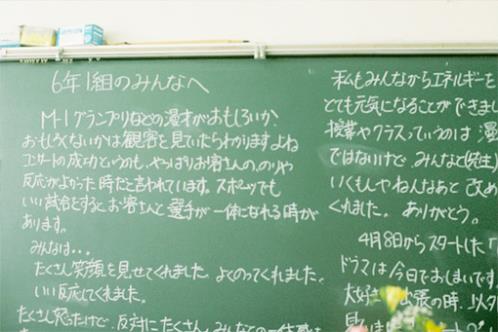 6年1組のみんなへ
M-1グランプリなどの漫才がおもしろいか、
おもしろくないかは観客を見ていたらわかりますよね
コンサートの成功というのも、やっぱりお客さんの、のりや
反応がよかった時だと言われています。スポーツでも
いい試合をするとお客さんと選手が一体になれる時が
あります。
みんなは・・・
たくさん笑顔を見せてくれました。よくのってくれました。
いい反応してくれました。
たくさん笑ったけど、反対にたくさん
私もみんなからエネルギーを
とても元気になることができまし
授業やクラスっていうのは 漫
ではないけど、みんなと(先生)
いくもんやねんなあと 改め
くれました。ありがとう。
4月8日からスタートした
ドラマは今日でおしまいです
大好き